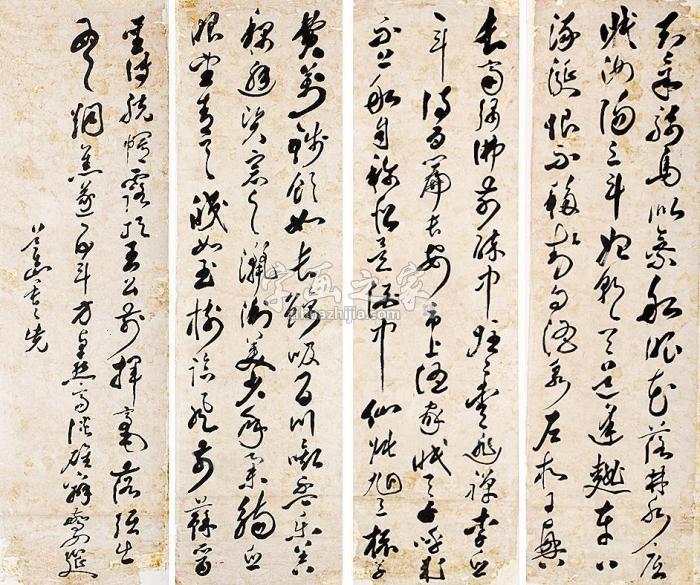 知章騎馬似乘船眼花落井水底
眠汝陽三斗始朝天道逢麴車口
流涎恨不移封向酒泉左相日興
長齋繡佛前醉中往往愛逃禪李白
一斗詩百篇長安市上酒家眠天子呼來
不上船自稱臣是酒中仙張旭三杯草
費萬錢飲如長鯨吸百川銜杯樂聖
稱避賢宗之瀟灑美少年舉觴白
眼望青天皎如玉樹臨風前蘇晉
聖傳脫帽露頂王公前揮毫落紙如
雲烟焦遂五斗方卓然高談雄辯驚筵
字画之家
zihuazhijia.com